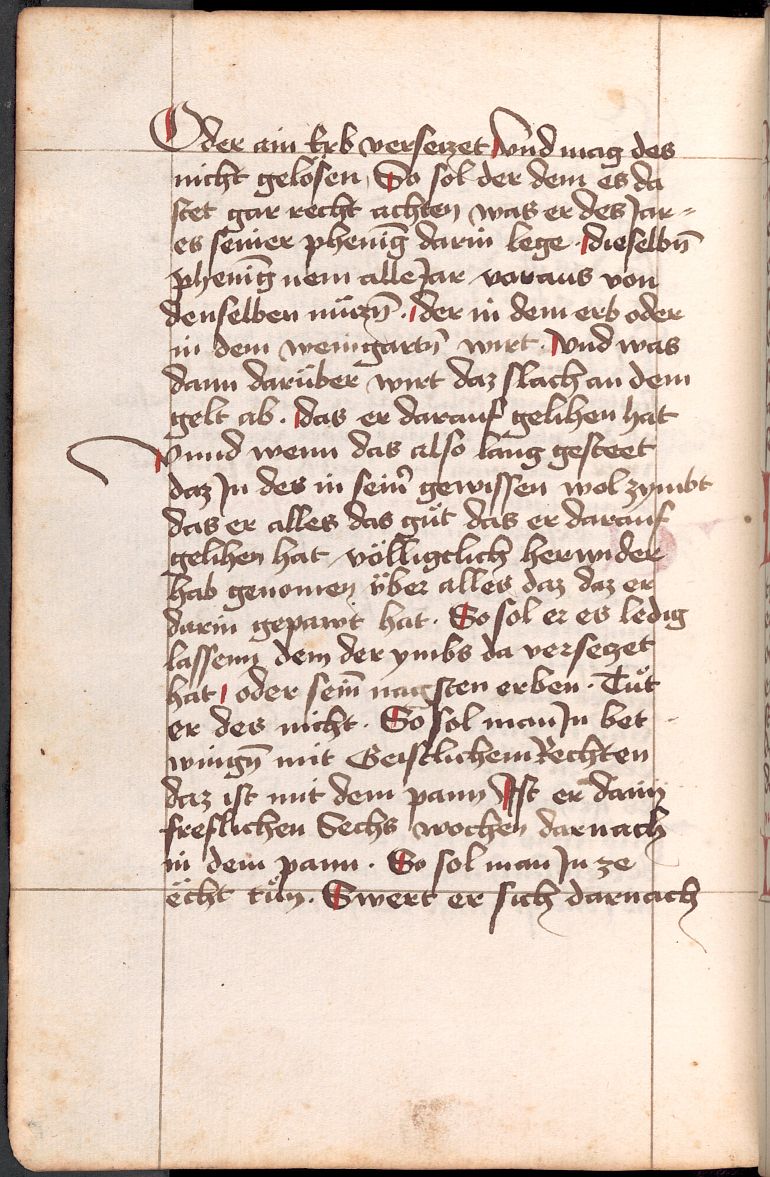 Oder ain Erb versetzet Vnd mag des
nicht gelösen, So sol der dem es da
stet gar recht achten was er des Jar-
es seiner phenīg darin lege. dieselbn̄
phenīg nem alle Jar voraus von
denselben nüczn̄. der in dem erb oder
in dem weingartn̄ wirt. Vnd was
dann darüber wirt daz slach an dem
gelt ab. das er darauf gelihen hat
Vnnd wenn das also lang gesteet
daz Jn des in sein̄ gewissen wol zymbt
das er alles das gůt das er darauf
gelihen hat völligclich herwider
hab genomen über alles daz daz er
darin gepawt hat. So sol er es ledig
lassenn dem der ymbs da versetzet
hat, oder sein̄ nagsten erben. Tůt
er des nicht. So sol man Jn bet-
wingn̄ mit Geistlichem Rechten
daz ist mit dem pann Ist er dann
freflichen Sechs wochen darnach
in dem pann. So sol man Jn ze
ächt tůn. Swert er sich darnach